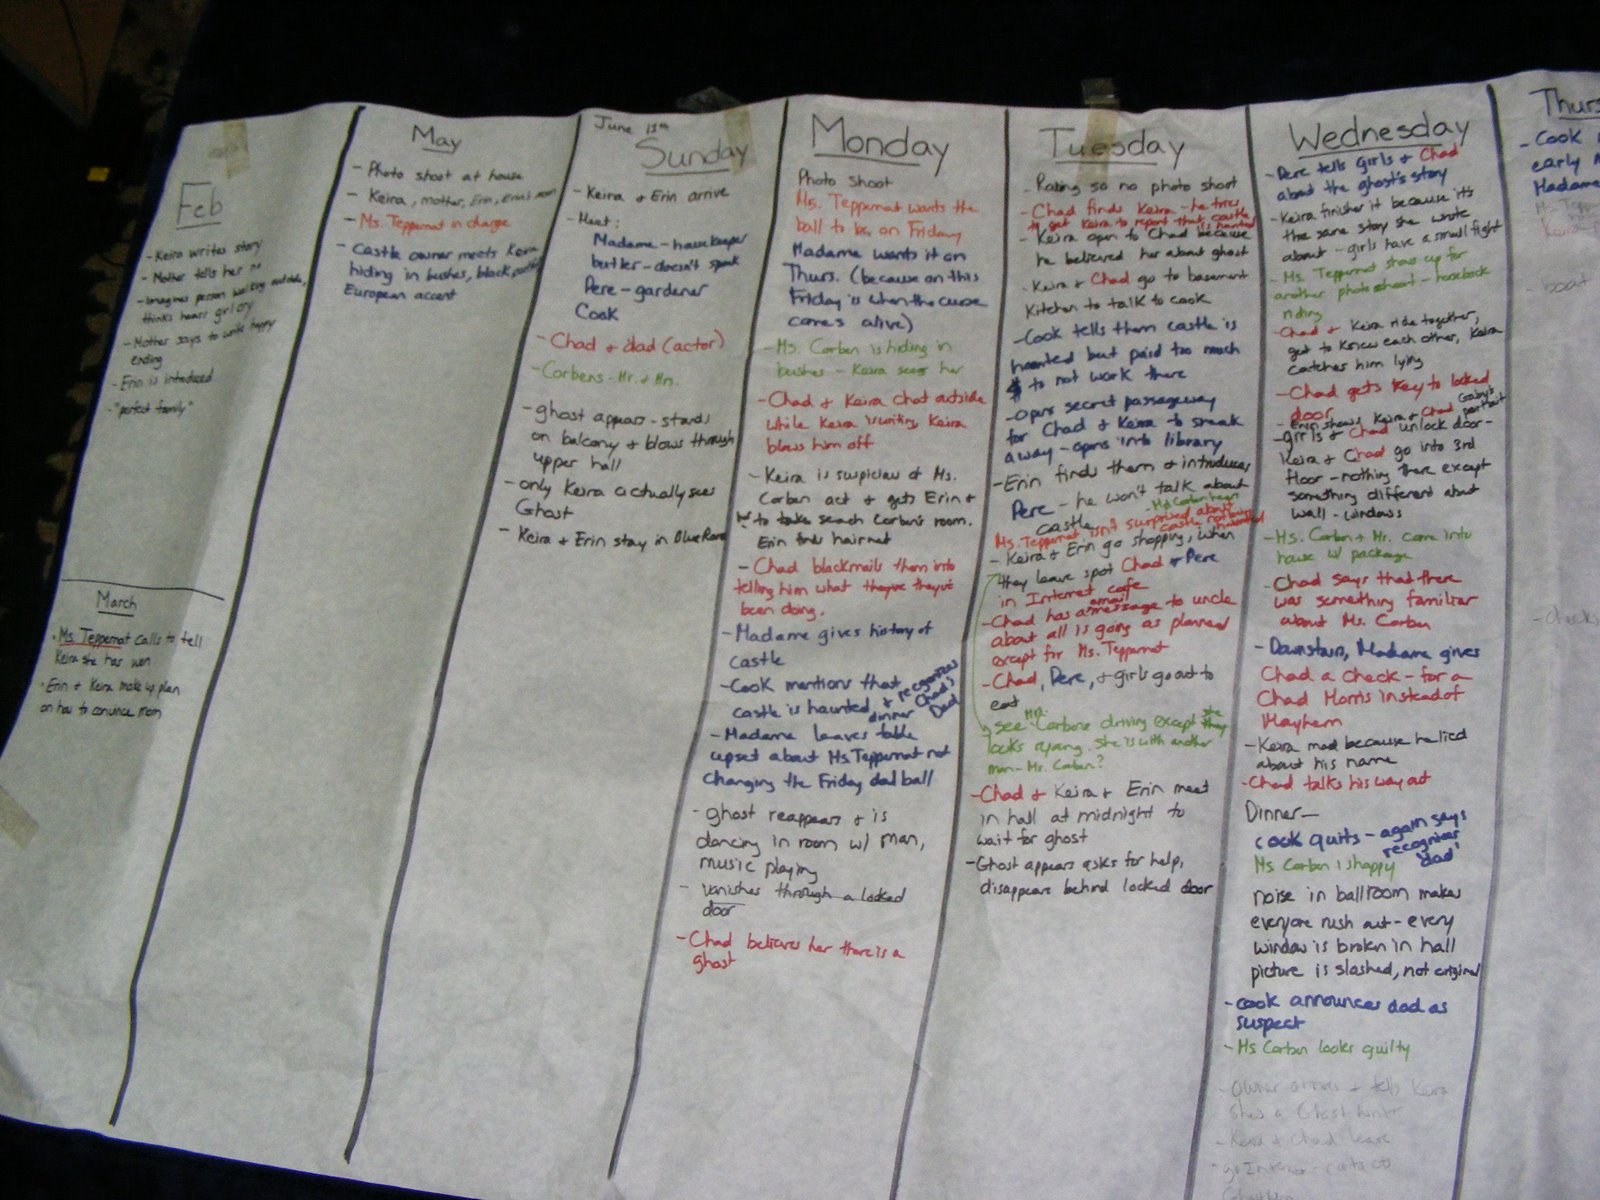 Feb
- Keira writes story
- Mother tells her no
- imagines person walking outside,
thinks hears girl cry
- Mother says to write happy
ending
- Erin is introduced
- "perfect family"
March
- Ms. Teppernat calls to tell
Keira she has won
- Erin & Keira make up plan
on how to convince mom
May
- Photo shoot at house
- Keira, mother, Erin, Erin's mom
- Ms. Teppernat in charge
- Castle owner meets Keira
hiding in bushes, black
European accent
June 15th
Sunday
- Keira & Erin arrive
- Meet:
Madame - housekeeper
butler - doesn't speak
Pere - gardener
Cook
- Chad & dad (actor)
- Corbens - Mr. & Mrs.
- ghost appears - stands
on balcony & blows through
upper hall
- only Keira actually sees
Ghost
- Keira & Erin stay in Blue Room
Monday
Photo Shoot
Ms. Teppernat wants the
ball to be on Friday
Madame wants it on
Thurs. (because on this
Friday is when the curse
comes alive)
- Ms. Corben is hiding in
bushes - Keira sees her
- Chad & Keira chat outside
while Keira is writing Keira
blows him off
- Keira is suspicious of Ms.
Corben act & gets Erin &
to take search Corben's room.
Erin finds hairnet
- Chad blackmails them into
telling him what they've they've
been doing.
- Madame gives history of
castle
- Cook mentions that
castle is haunted & recognizes
dinner Chad's
Dad
- Madame leaves table
upset about Ms. Teppernat not
changing the Friday dad ball
- ghost reappears & is
dancing in room w/ man,
music playing
- vanishes through a locked
door
- Chad believes her there is a
ghost
Tuesday
- Raining so no photo shoot
- Chad finds Keira - he tries
to get Keira to report that castle is haunted
- Keira open to Chad because
he believed her about ghost
- Keira & Chad go to basement
Kitchen to talk to cook
- Cook tells them castle is
haunted but paid too much
$ to not work there
- opens secret passageway
for Chad & Keira to sneak
away - opens into library
- Erin finds them & introduces
Pere - he won't talk about
castle
Ms. Teppernat isn't surprised about
castle being haunted
- Keira & Erin go shopping, when
they leave spot Chad & Pere
in Internet cafe
- Chad has a message to uncle
email
about all is going as planned
except for Ms. Teppernat
- Chad, Pere, & girls go out to
eat
see Mrs. Corbens driving except she
looks young. She is with another
man - Mr. Corben?
- Chad & Keira & Erin meet
in hall at midnight to
wait for ghost
- Ghost appears asks for help,
disappears behind locked door
Wednesday
- Pere tells girls & Chad
about the ghost's story
- Keira finishes it because it's
the same story she wrote
about - girls have a small fight
- Ms. Teppernat shows up for
another photo shoot - horseback
riding
- Chad & Keira ride together,
get to know each other, Keira
catches him lying
- Chad gets key to locked
door
- Erin shows Keira & Chad Gaby's portrait
- girls & Chad unlock door -
Keira & Chad go into 3rd
floor - nothing there except
something different about
wall - windows
- Ms. Corben & Mr. come into
house w/ package
- Chad says that there
was something familiar
about Ms. Corben
- Downstairs, Madame gives
Chad a check - for a
Chad Morris instead of
Mayhem
- Keira mad because he lied
about his name
- Chad talks his way out
Dinner -
cook quits - again says
recognizes
"dad"
Ms Corben is happy
noise in ballroom makes
everyone rush out - every
window is broken in hall
picture is slashed, not original
- cook announces dad as
suspect
- Ms Corben looks guilty
- Owner arrives & tells Keira
she's a Ghost
- Keira & Chad leave
- go Internet
Thurs
- Cook
early
Madame
- boat
- checks